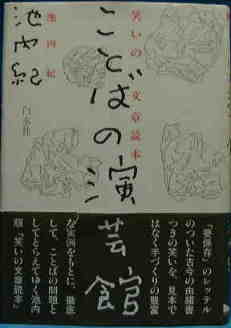 笑いの文章読本
ことばの演芸館
池内紀
池内紀
白水社
「要保存」のレッテル
のついた古今の由緒書
つきの笑いを、見本で
はなく手づくりの豊富
な実例をもとに、徹底
して、ことばの問題と
してとらえてゆく池内
版「笑いの文章読本」